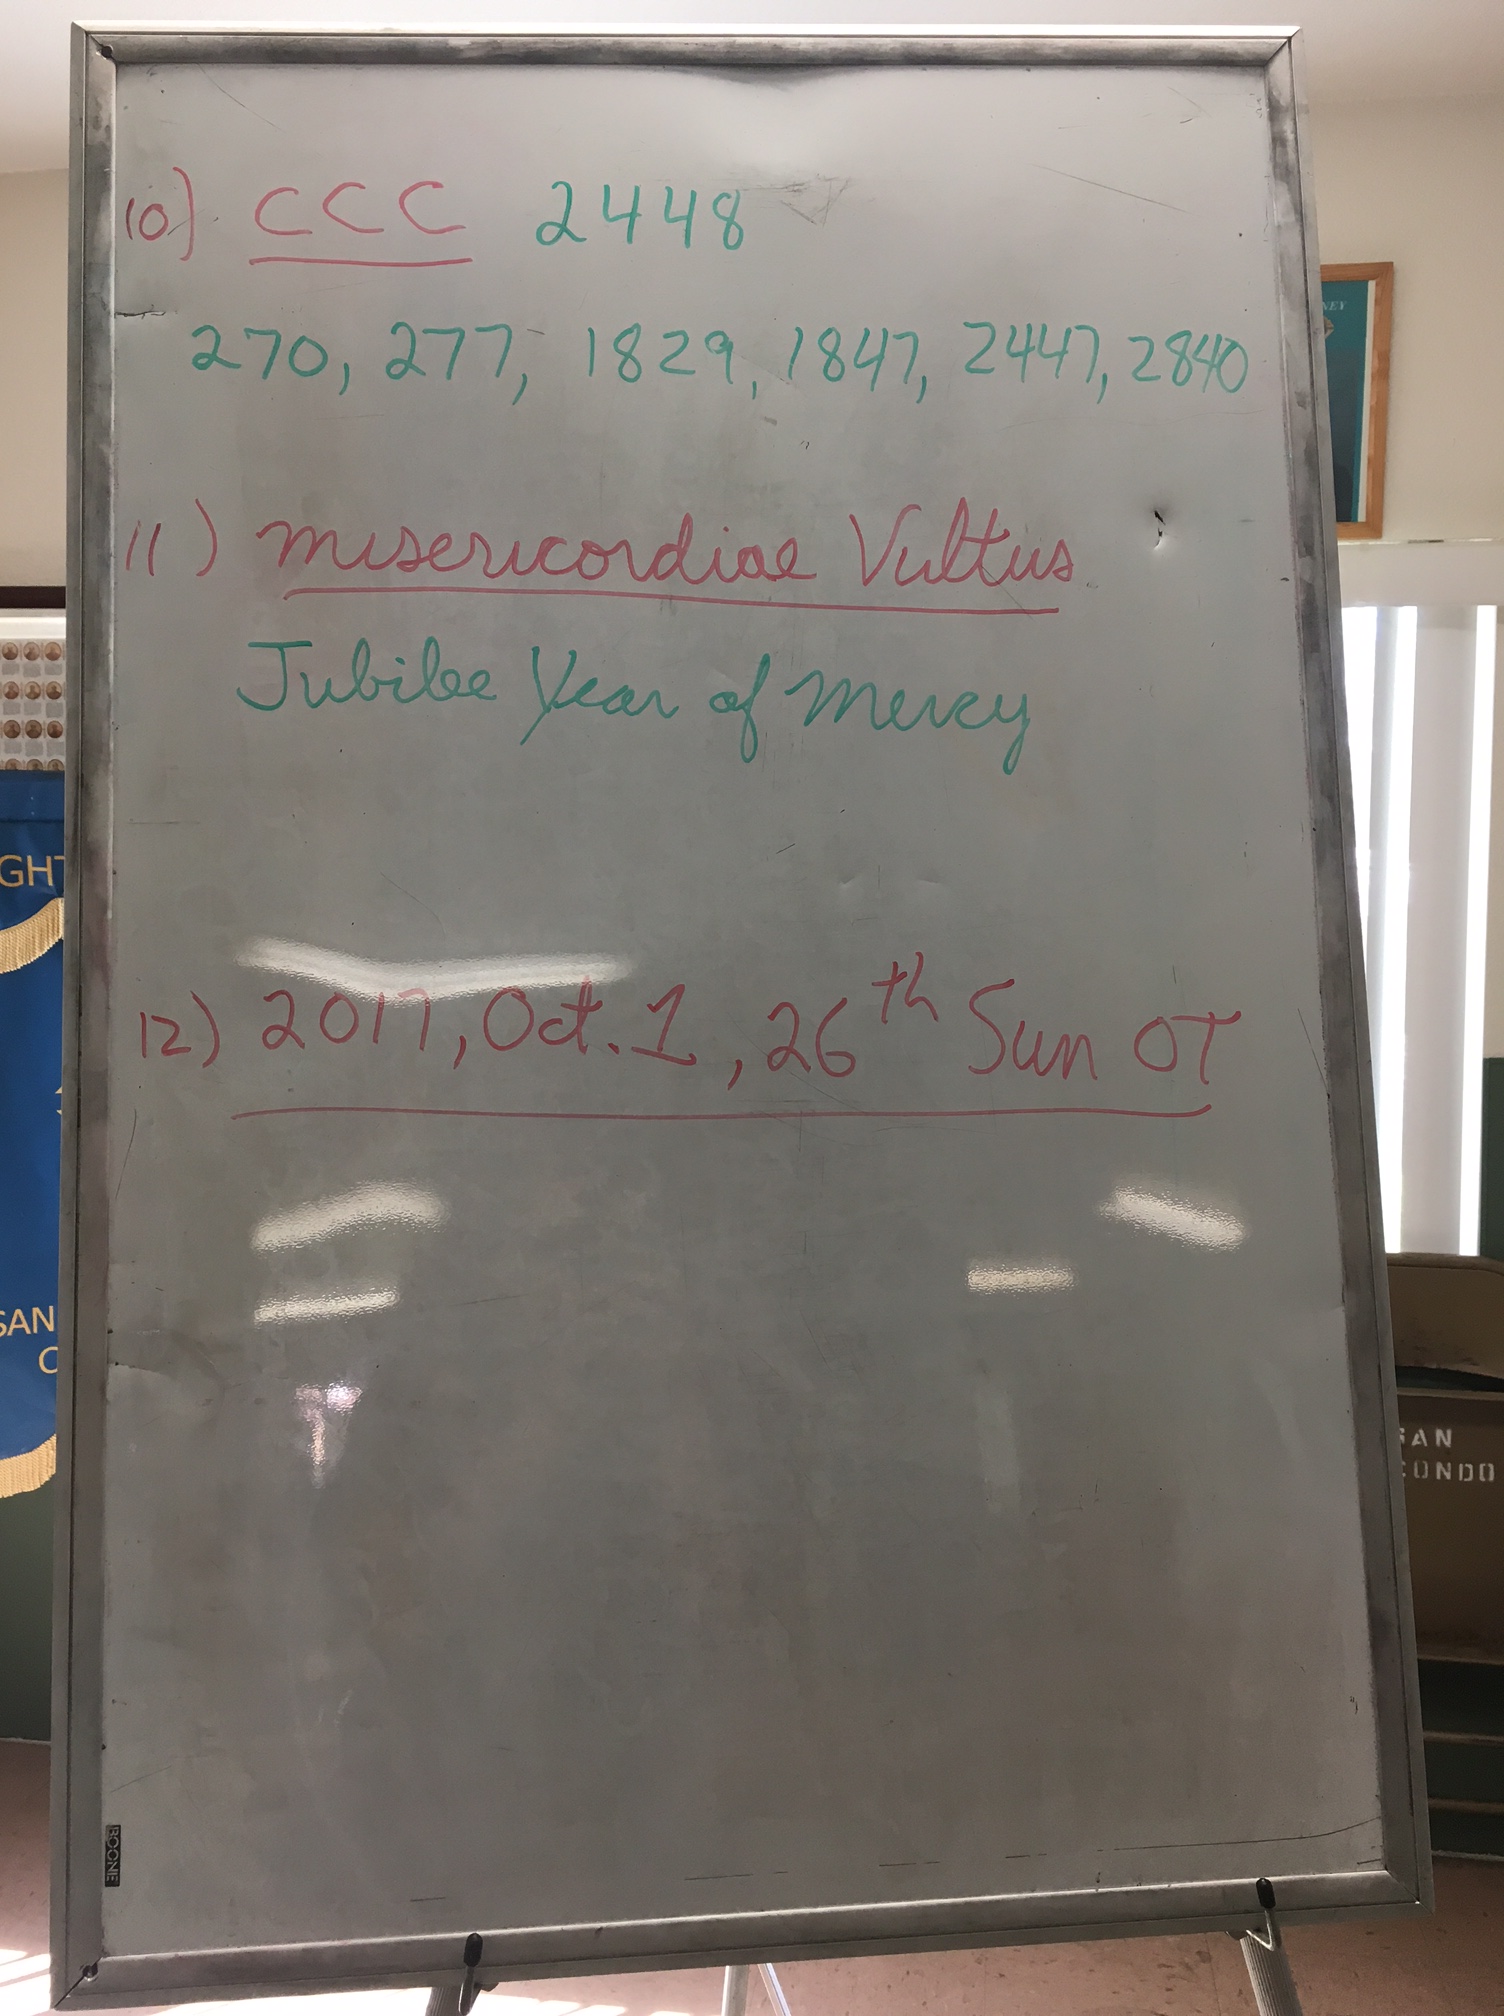 10) CCC 2448
270, 277, 1829, 1847, 2447, 2840
11) Misericordiae Vultus
Jubilee Year of Mercy
12) 2017, Oct. 1, 26th Sun OT
GHT
SAN
C
SAN
CONDO
NEY
BOONE